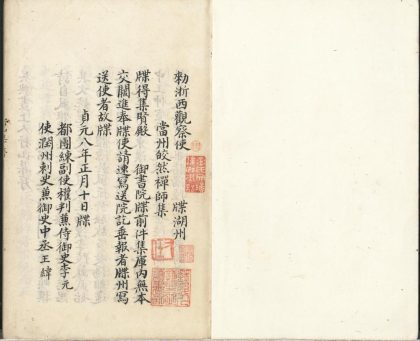 勑浙西觀察使　　牒湖州
當州皎然禪師集
牒得集賢殿　御書院牒前件集庫內無本
交闕進奉牒使請速寫送院訖垂報者牒州寫
送使者故牒
貞元八年正月十日牒
都團練副使權判兼侍御史李元
使潤州刺史兼御史中丞王緯